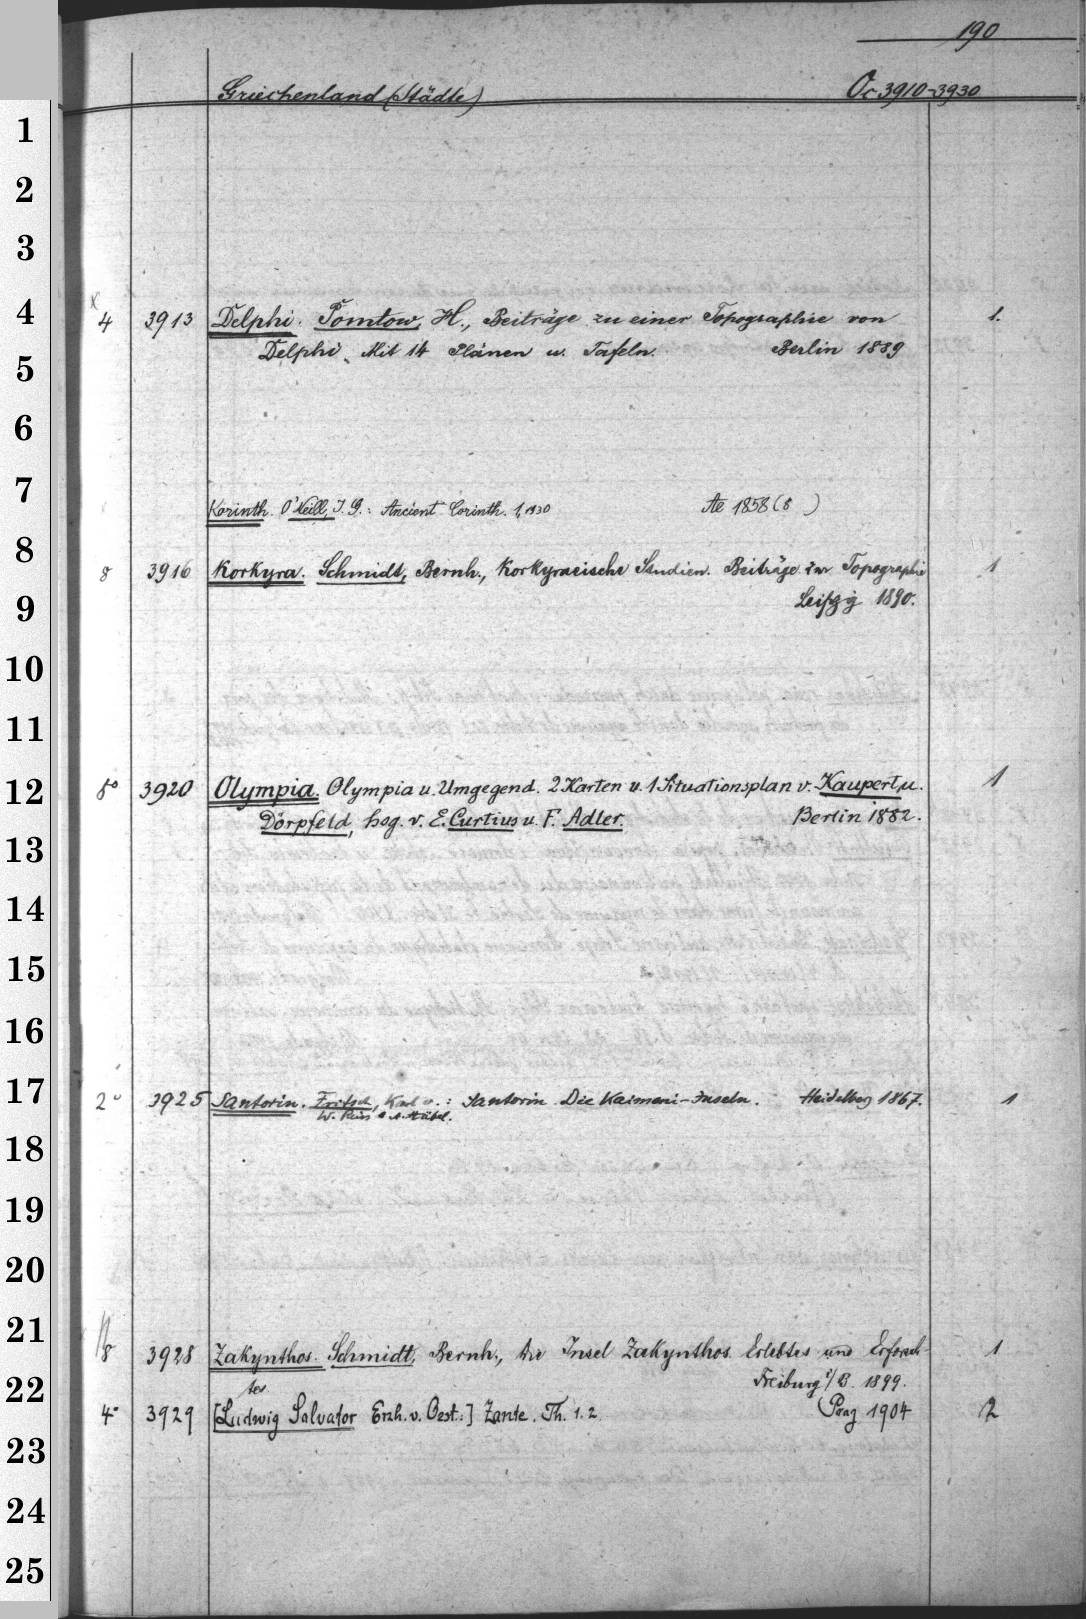 190
Griechenland (Städte) Oc 3910-3930
1
2
3
4
4 3913 Delphi. Pomtow, H., Beiträge zu einer Topographie von 1.
Delphi. Mit 14 Plänen u. Tafeln. Berlin 1889
5
6
7
Korinth. O'Neill, J. G.: Ancient Corinth. 1, 1930 Ae 1858 (8 )
8
8 3916 Korkyra. Schmidt, Bernh., Korkyraeische Studien. Beiträge zur Topographie 1
9
Leipzig 1890.
10
11
12
8° 3920 Olympia. Olympia u. Umgegend. 2 Karten u. 1 Situationsplan v. Kaupert u. 1
Dörpfeld, hsg. v. E. Curtius u. F. Adler. Berlin 1882.
13
14
15
16
17
2° 3925 Santorin. Fritsch, Karl v.: Santorin Die Kaimeni-Inseln. Heidelberg 1867. 1
W. Reiss A. Stübel.
18
19
20
21
8 3928 Zakynthos. Schmidt, Bernh., Die Insel Zakynthos Erlebtes und Erforsch- 1
22
tes Freiburg i/B. 1899.
4° 3929 [Ludwig Salvator Erzh. v. Oest.:] Zante. Th. 1. 2. Prag 1904 2
23
24
25